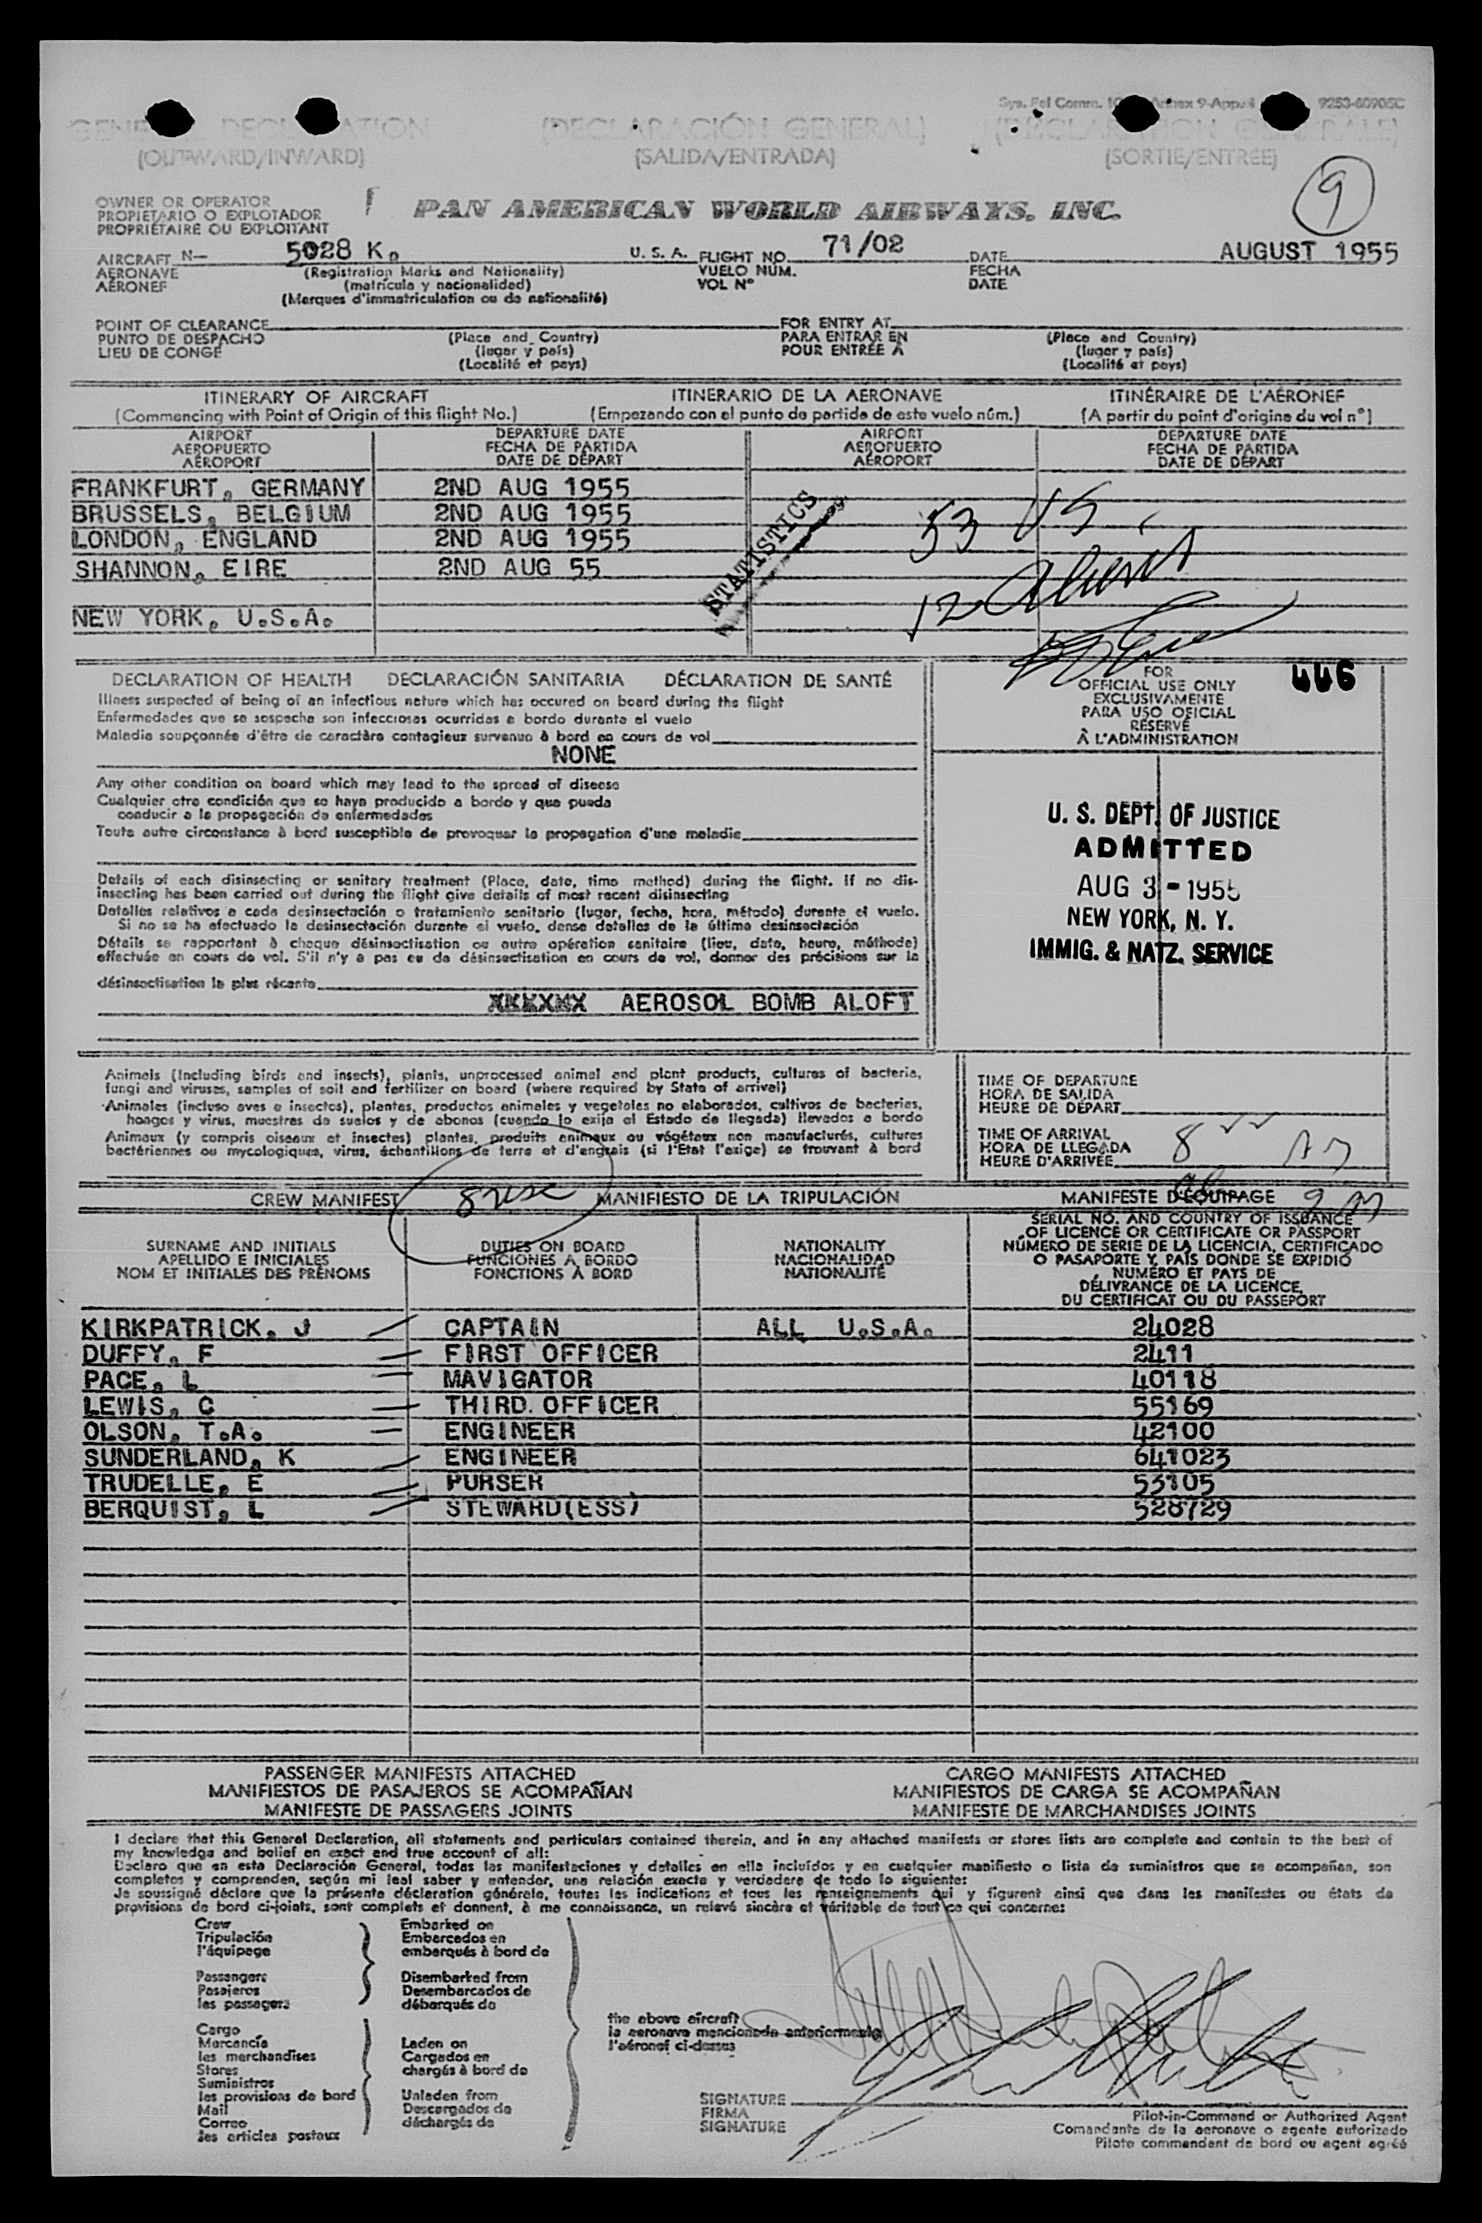 Annex 9-App.
9253-60905C
GENERAL DECLARATION (DECLARACIÓN GENERAL) (DECLARATION GENERALE)
(OUTWARD/INWARD) (SALIDA/ENTRADA) (SORTIE/ENTRÉE)
9
OWNER OR OPERATOR
PROPIETARIO O EXPLOTADOR
PROPRIÉTAIRE OU EXPLOITANT
PAN AMERICAN WORLD AIRWAYS, INC.
AIRCRAFT N— 5028 K. U. S. A. FLIGHT NO. 71/02 DATE AUGUST 1955
AERONAVE (Registration Marks and Nationality) VUELO NÚM. FECHA
AÉRONEF (matrícula y nacionalidad) VOL N° DATE
(Marques d'immatriculation ou de nationalité)
POINT OF CLEARANCE FOR ENTRY AT
PUNTO DE DESPACHO (Place and Country) PARA ENTRAR EN (Place and Country)
LIEU DE CONGÉ (lugar y país) POUR ENTRÉE À (lugar y país)
(Localité et pays) (Localité et pays)
ITINERARY OF AIRCRAFT ITINERARIO DE LA AERONAVE ITINÉRAIRE DE L'AÉRONEF
(Commencing with Point of Origin of this flight No.) (Empezando con el punto de partida de este vuelo núm.) (A partir du point d'origine du vol n°)
AIRPORT DEPARTURE DATE AIRPORT DEPARTURE DATE
AEROPUERTO FECHA DE PARTIDA AEROPUERTO FECHA DE PARTIDA
AÉROPORT DATE DE DÉPART AÉROPORT DATE DE DÉPART
FRANKFURT, GERMANY 2ND AUG 1955
BRUSSELS, BELGIUM 2ND AUG 1955
LONDON, ENGLAND 2ND AUG 1955
SHANNON, EIRE 2ND AUG 55
NEW YORK, U.S.A.
STATISTICS
53 US
12 Aliens
DECLARATION OF HEALTH DECLARACIÓN SANITARIA DÉCLARATION DE SANTÉ
Illness suspected of being of an infectious nature which has occured on board during the flight
Enfermedades que se sospecha son infecciosas ocurridas a bordo durante el vuelo
Maladie soupçonnée d'être de caractère contagieux survenue à bord en cours de vol
NONE
Any other condition on board which may lead to the spread of disease
Cualquier otra condición que se haya producido a bordo y que pueda
conducir a la propagación de enfermedades
Toute autre circonstance à bord susceptible de provoquer la propagation d'une maladie
Details of each disinsecting or sanitary treatment (Place, date, time method) during the flight. If no dis-
insecting has been carried out during the flight give details of most recent disinsecting
Detalles relativos a cada desinsectación o tratamiento sanitario (lugar, fecha, hora, método) durante el vuelo.
Si no se ha efectuado la desinsectación durante el vuelo, dense detalles de la última desinsectación
Détails se rapportant à chaque désinsectisation ou autre opération sanitaire (lieu, date, heure, méthode)
effectuée en cours de vol. S'il n'y a pas eu de désinsectisation en cours de vol, donner des précisions sur la
désinsectisation la plus récente
XXXXXX AEROSOL BOMB ALOFT
FOR
OFFICIAL USE ONLY
EXCLUSIVAMENTE
PARA USO OFICIAL
RÉSERVÉ
À L'ADMINISTRATION
446
U. S. DEPT. OF JUSTICE
ADMITTED
AUG 3 - 1955
NEW YORK, N. Y.
IMMIG. & NATZ. SERVICE
Animals (Including birds and insects), plants, unprocessed animal and plant products, cultures of bacteria,
fungi and viruses, samples of soil and fertilizer on board (where required by State of arrival)
Animales (incluso aves e insectos), plantas, productos animales y vegetales no elaborados, cultivos de bacterias,
hongos y virus, muestras de suelos y de abonos (cuando lo exija el Estado de llegada) llevados a bordo
Animaux (y compris oiseaux et insectes) plantes, produits animaux ou végétaux non manufacturés, cultures
bactériennes ou mycologiques, virus, échantillons de terre et d'engrais (si l'Etat l'exige) se trouvant à bord
TIME OF DEPARTURE
HORA DE SALIDA
HEURE DE DÉPART
TIME OF ARRIVAL
HORA DE LLEGADA
HEURE D'ARRIVÉE
8 AM
CREW MANIFEST MANIFIESTO DE LA TRIPULACIÓN MANIFESTE D'ÉQUIPAGE
SURNAME AND INITIALS DUTIES ON BOARD NATIONALITY
APELLIDO E INICIALES FUNCIONES A BORDO NACIONALIDAD
NOM ET INITIALES DES PRÉNOMS FONCTIONS À BORD NATIONALITÉ
SERIAL NO. AND COUNTRY OF ISSUANCE
OF LICENCE OR CERTIFICATE OR PASSPORT
NÚMERO DE SERIE DE LA LICENCIA, CERTIFICADO
O PASAPORTE Y, PAÍS DONDE SE EXPIDIÓ
NUMÉRO ET PAYS DE
DÉLIVRANCE DE LA LICENCE,
DU CERTIFICAT OU DU PASSEPORT
KIRKPATRICK, J CAPTAIN ALL U.S.A. 24028
DUFFY, F FIRST OFFICER 2411
PACE, L MAVIGATOR 40118
LEWIS, C THIRD OFFICER 55169
OLSON, T.A. ENGINEER 42100
SUNDERLAND, K ENGINEER 641023
TRUDELLE, E PURSER 53105
BERQUIST, L STEWARD(ESS) 528729
PASSENGER MANIFESTS ATTACHED CARGO MANIFESTS ATTACHED
MANIFIESTOS DE PASAJEROS SE ACOMPAÑAN MANIFIESTOS DE CARGA SE ACOMPAÑAN
MANIFESTE DE PASSAGERS JOINTS MANIFESTE DE MARCHANDISES JOINTS
I declare that this General Declaration, all statements and particulars contained therein, and in any attached manifests or stores lists are complete and contain to the best of
my knowledge and belief an exact and true account of all:
Declaro que en esta Declaración General, todas las manifestaciones y detalles en ella incluídos y en cualquier manifiesto o lista de suministros que se acompañan, son
completos y comprenden, según mi leal saber y entender, una relación exacta y verdadera de todo lo siguiente:
Je soussigné déclare que la présente déclaration générale, toutes les indications et tous les renseignements qui y figurent ainsi que dans les manifestes ou états de
provisions de bord ci-joints, sont complets et donnent, à ma connaissance, un relevé sincère et véritable de tout ce qui concerne:
Crew Embarked on
Tripulación Embarcados en
l'équipage embarqués à bord de
Passengers Disembarked from
Pasajeros Desembarcados de
les passagers débarqués de
the above aircraft
la aeronave mencionada anteriormente
l'aéronef ci-dessus
Cargo
Mercancía Laden on
les marchandises Cargados en
Stores chargés à bord de
Suministros
les provisions de bord Unladen from
Mail Descargados de
Correo déchargés de
les articles postaux
SIGNATURE
FIRMA
SIGNATURE
Pilot-in-Command or Authorized Agent
Comandante de la aeronave o agente autorizado
Pilote commandant de bord ou agent agréé